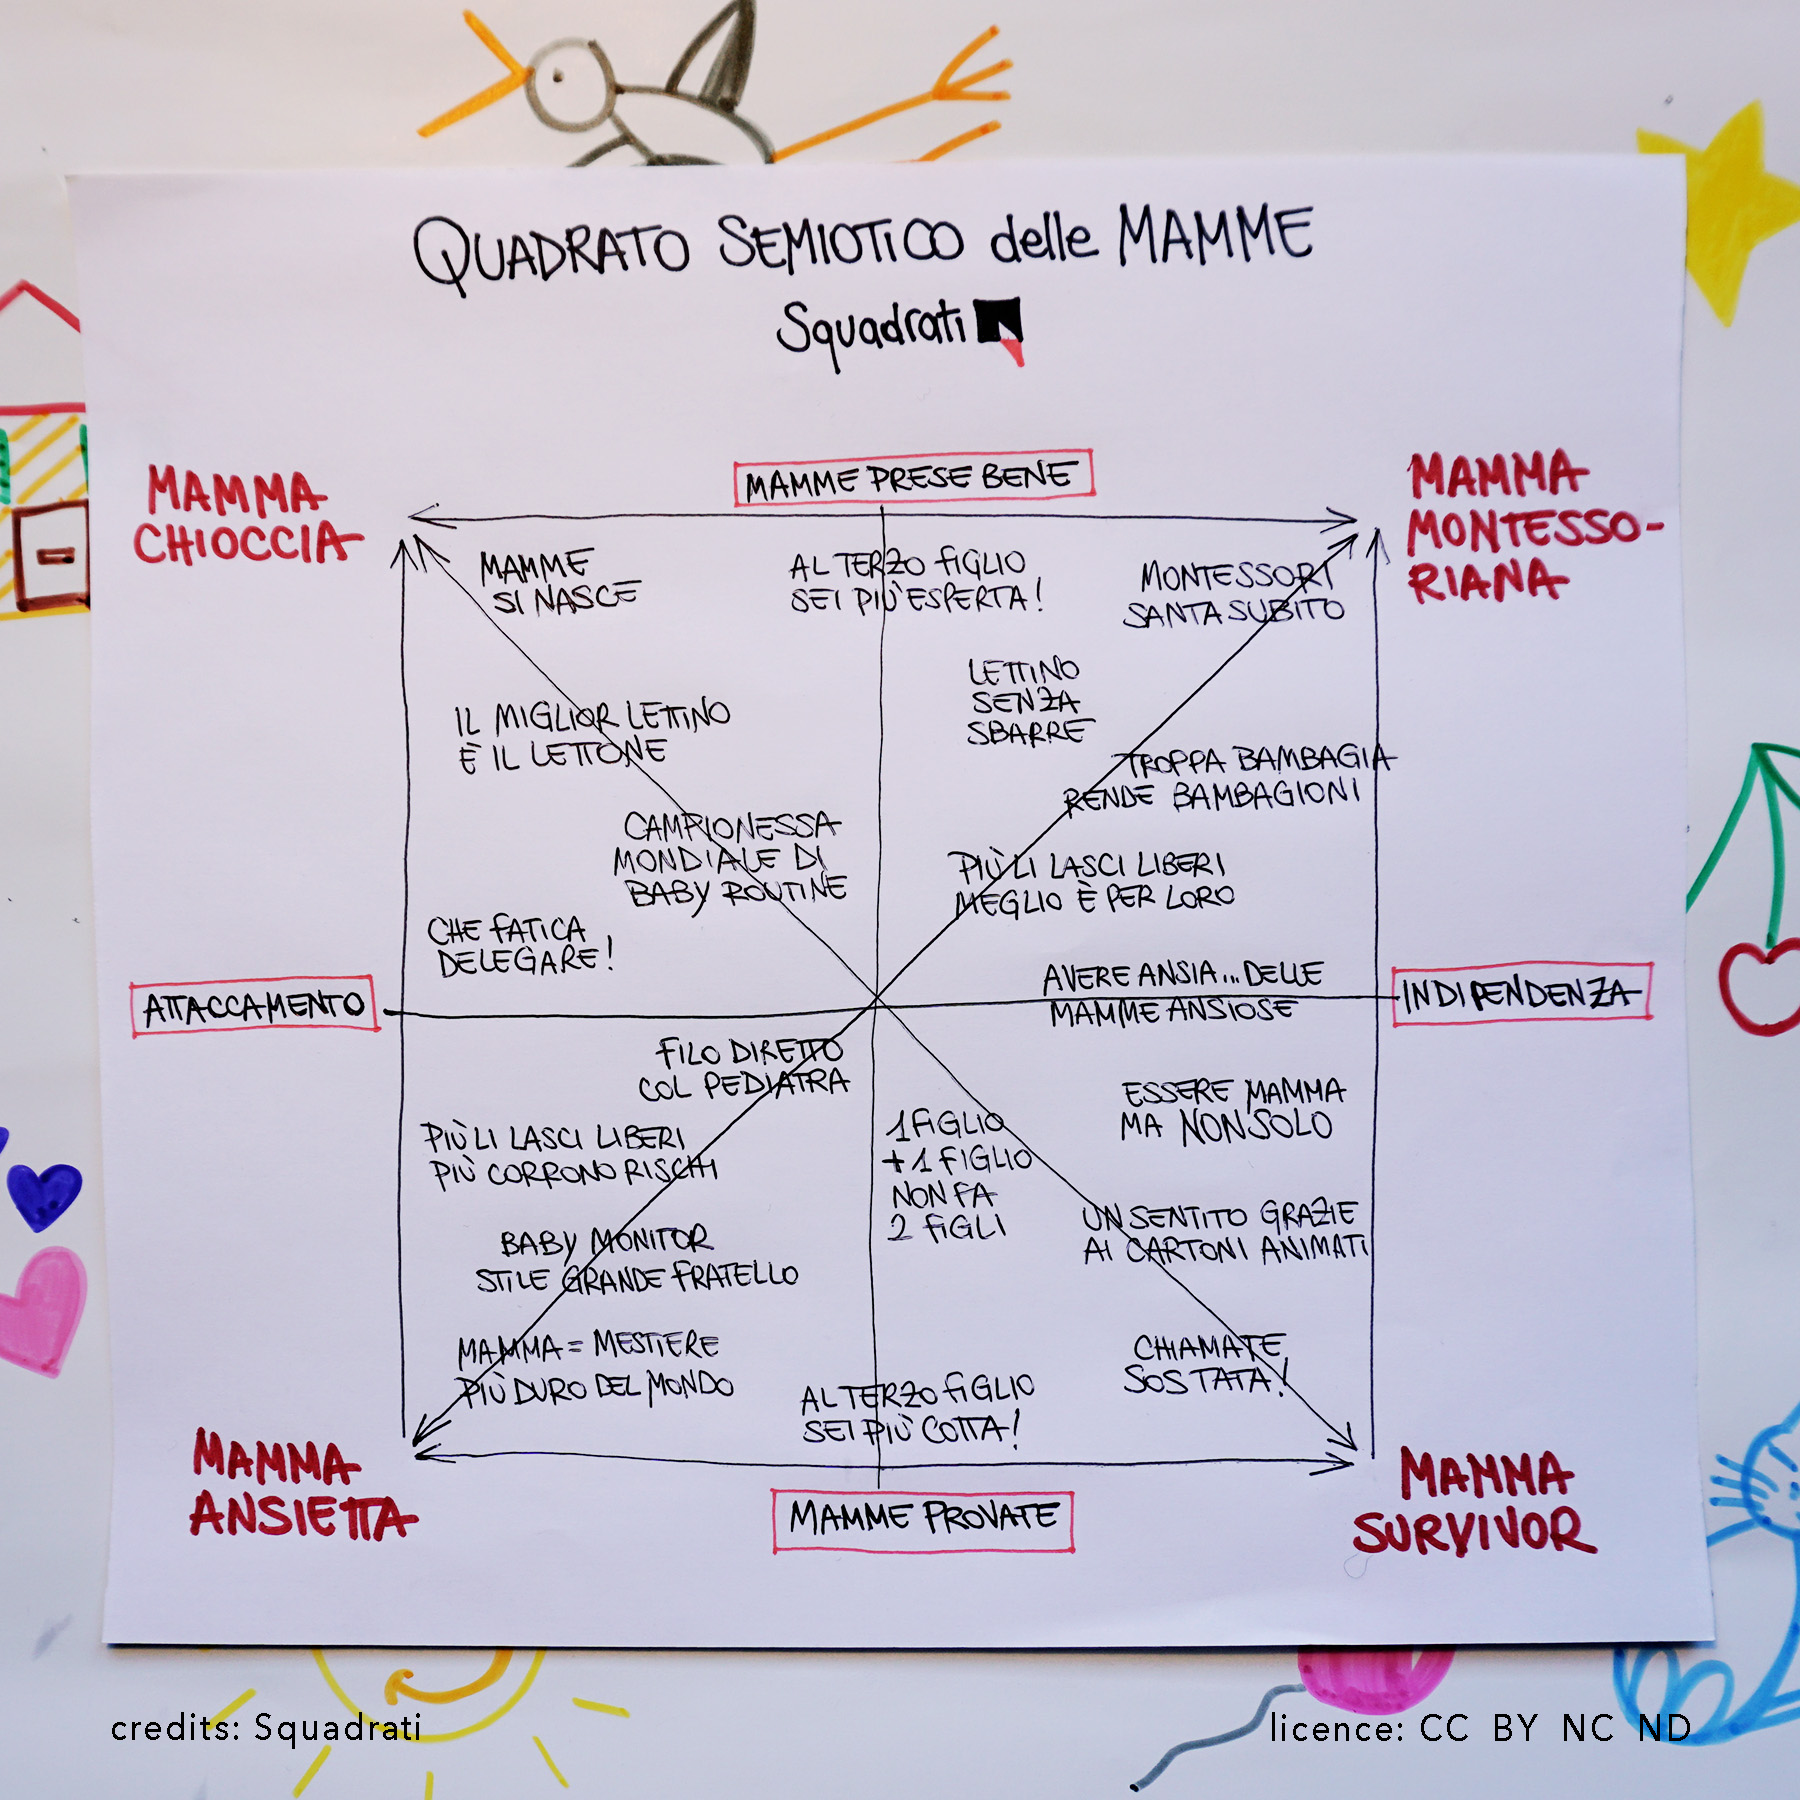 QUADRATO SEMIOTICO delle MAMME
Squadrati
MAMMA
CHIOCCIA
MAMME PRESE BENE
MAMMA
MONTESSO-
RIANA
MAMME
SI NASCE
AL TERZO FIGLIO
SEI PIÙ ESPERTA!
MONTESSORI
SANTA SUBITO
LETTINO
SENZA
SBARRE
IL MIGLIOR LETTINO
È IL LETTONE
TROPPA BAMBAGIA
RENDE BAMBAGIONI
CAMPIONESSA
MONDIALE DI
BABY ROUTINE
PIÙ LI LASCI LIBERI
MEGLIO È PER LORO
CHE FATICA
DELEGARE!
ATTACCAMENTO
AVERE ANSIA...DELLE
MAMME ANSIOSE
INDIPENDENZA
FILO DIRETTO
COL PEDIATRA
ESSERE MAMMA
MA NON SOLO
PIÙ LI LASCI LIBERI
PIÙ CORRONO RISCHI
1 FIGLIO
+1 FIGLIO
NON FA
2 FIGLI
UN SENTITO GRAZIE
AI CARTONI ANIMATI
BABY MONITOR
STILE GRANDE FRATELLO
MAMMA = MESTIERE
PIÙ DURO DEL MONDO
CHIAMATE
SOS TATA!
AL TERZO FIGLIO
SEI PIÙ COTTA!
MAMMA
ANSIETTA
MAMME PROVATE
MAMMA
SURVIVOR
credits: Squadrati
licence: CC BY NC ND